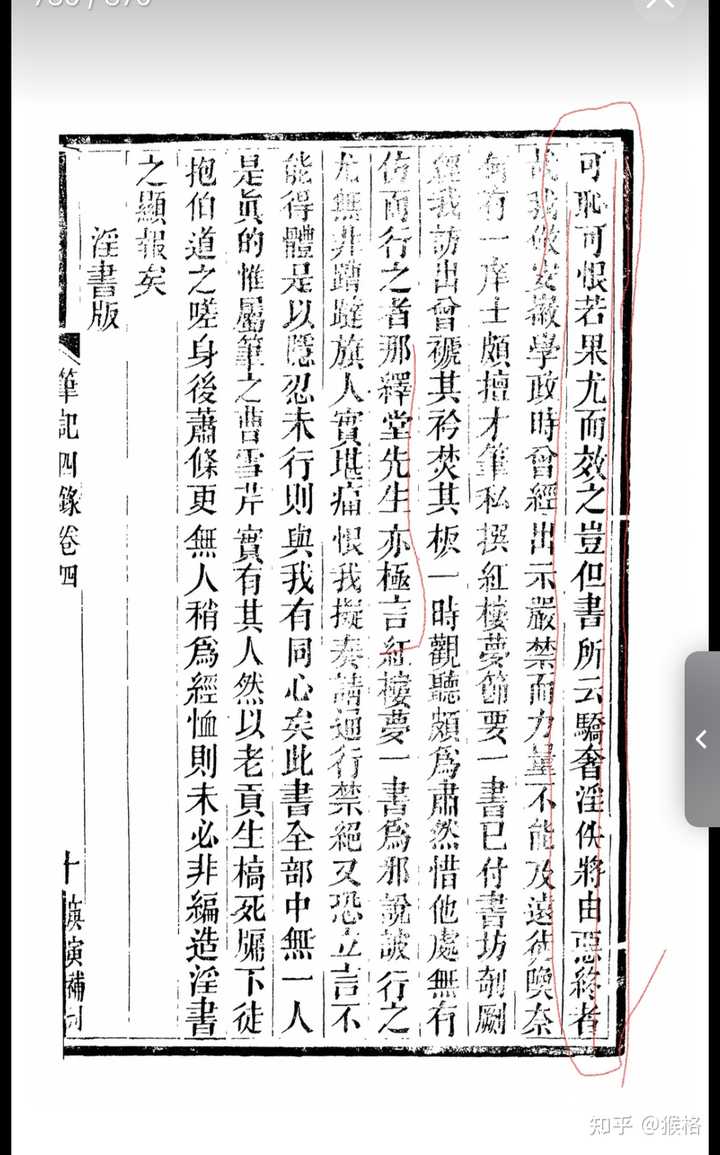 可恥可恨若果尤而效之豈但書所云驕奢淫佚將由惡終者
哉我做安徽學政時曾經出示嚴禁而力量不能及遠徒喚奈
何有一庠士頗擅才筆私撰紅樓夢節要一書已付書坊剞劂
經我訪出曾褫其衿焚其板一時觀聽頗為肅然惜他處無有
仿而行之者那繹堂先生亦極言紅樓夢一書為邪說詖行之
尤無非蹧蹋旗人實堪痛恨我擬奏請通行禁絕又恐立言不
能得體是以隱忍未行則與我有同心矣此書全部中無一人
是真的惟屬筆之曹雪芹實有其人然以老貢生槁死牖下徒
抱伯道之嗟身後蕭條更無人稍為經恤則未必非編造淫書
之顯報矣
淫書版
筆記四錄卷四
十
知乎 @猴格